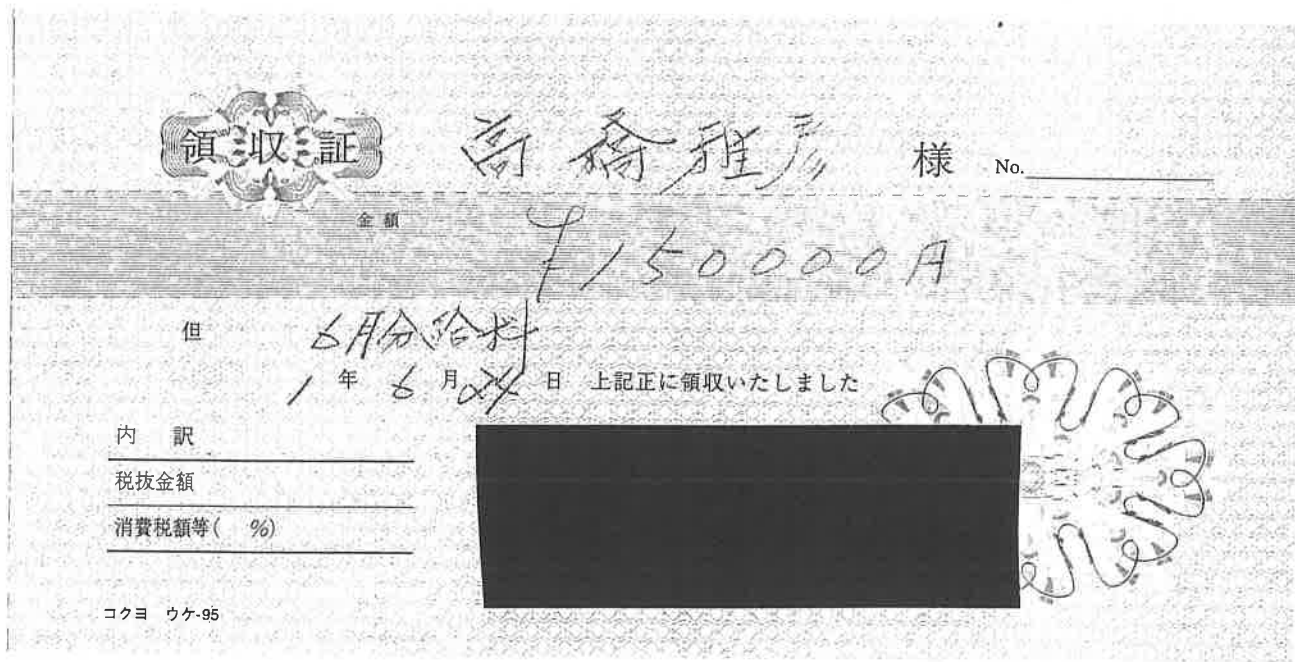 領収証 高橋雅彦 様 No.
金額 ¥150000円
但 6月分給料
1年 6月24日 上記正に領収いたしました
内訳
税抜金額
消費税額等( %)
コクヨ ウケ-95